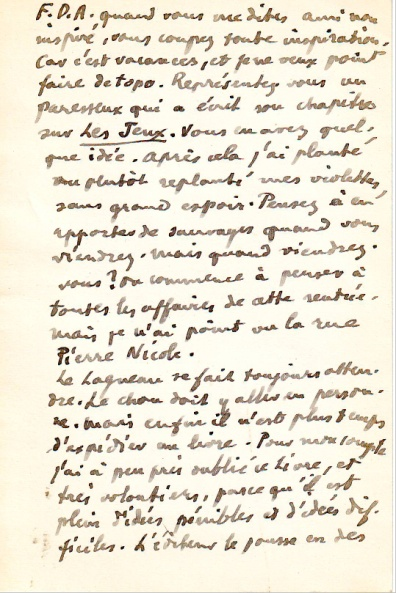 F.D.A. quand vous me dites ami non
inspiré, vous coupez toute inspiration.
Car c'est vacances, et je ne veux point
faire de topo. Représentez vous un
paresseux qui a écrit son chapitre
sur Les Jeux. Vous en avez quel-
que idée. Après cela j'ai planté
ou plutôt replanté mes violettes,
sans grand espoir. Pensez à en
rapporter de sauvages quand vous
viendrez. Mais quand viendrez-
vous ? on commence à penser à
toutes les affaires de cette rentrée.
Mais je n'ai point vu la rue
Pierre Nicole.
Le Lagneau se fait toujours atten-
dre. Le chou doit y aller en person-
ne. Mais enfin il n'est plus temps
d'expédier un livre. Pour mon compte
j'ai à peu près oublié ce Livre, et
très volontiers, parce qu'il est
plein d'idées pénibles et d'idées dif-
ficiles. L'éditeur le pousse en des